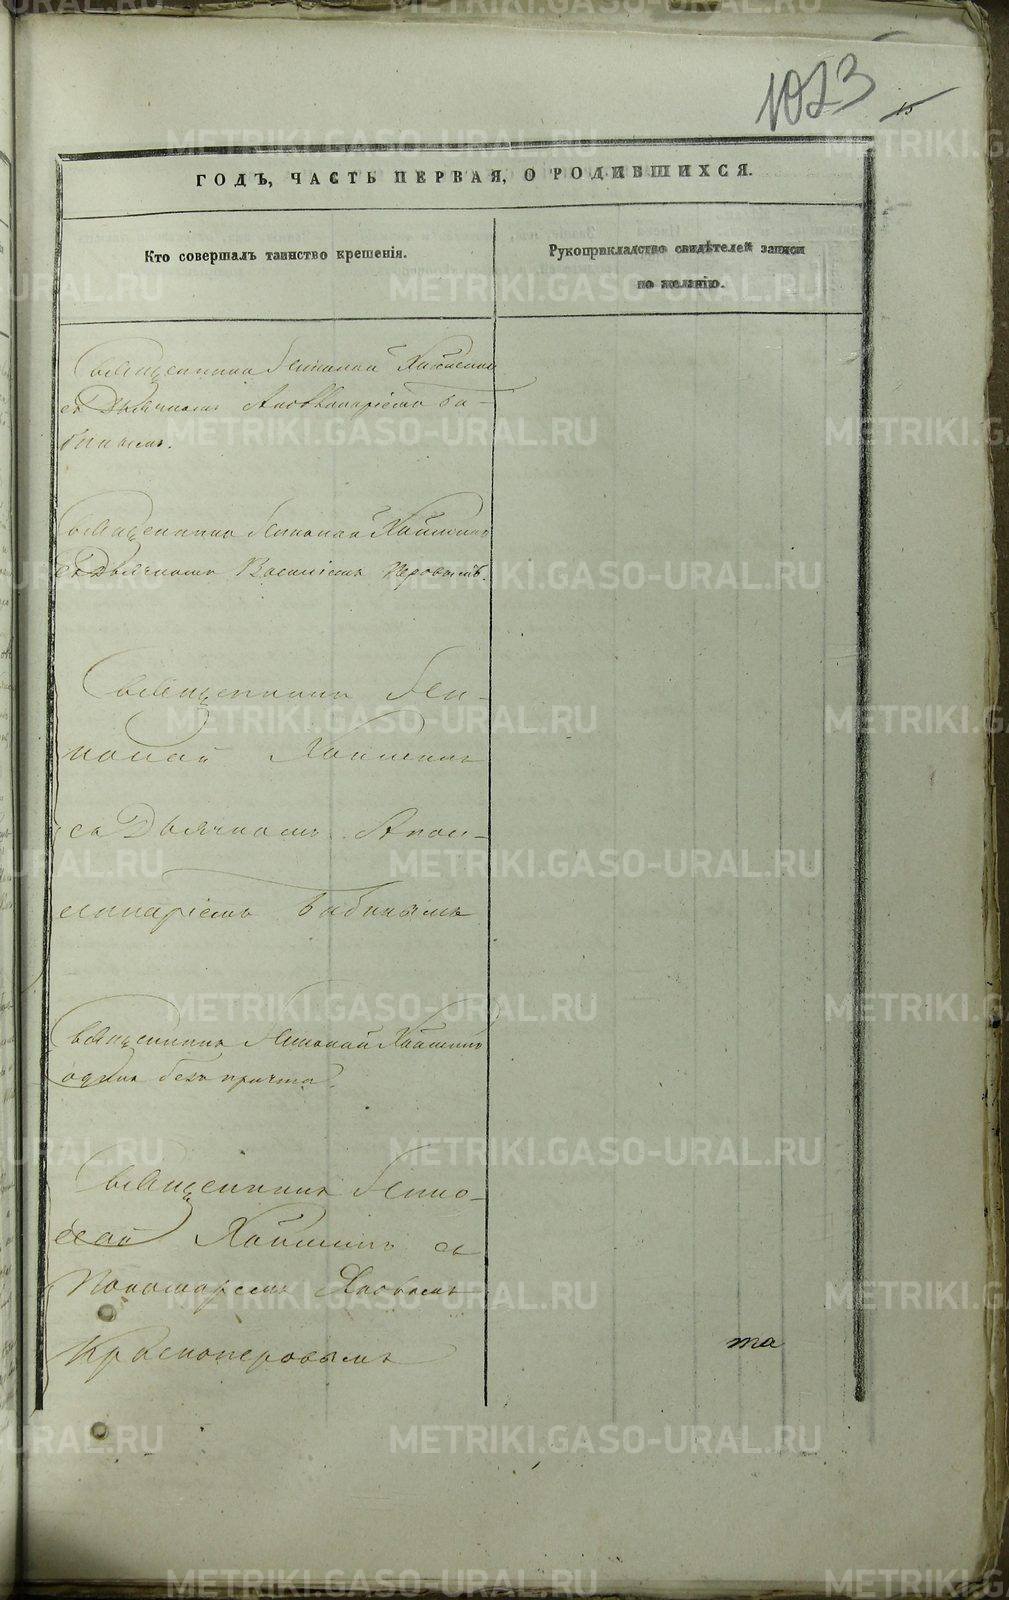 1023
15
ГОДЪ, ЧАСТЬ ПЕРВАЯ, О РОДИВШИХСЯ.
Кто совершалъ таинство крещенія.
Рукоприкладство свидѣтелей записи
по желанію.
Священникъ Николай
съ Дьячкомъ Аполлинаріемъ Ба-
бинымъ.
Священникъ Николай
съ Дьячкомъ Василіемъ
Священникъ Ни-
колай
съ Дьячкомъ Апол-
линаріемъ Бабинымъ
Священникъ Николай
одинъ безъ причта.
Священникъ Нико-
лай съ
Пономаремъ Яковомъ
Красноперовымъ
та
METRIKI.GASO-URAL.RU